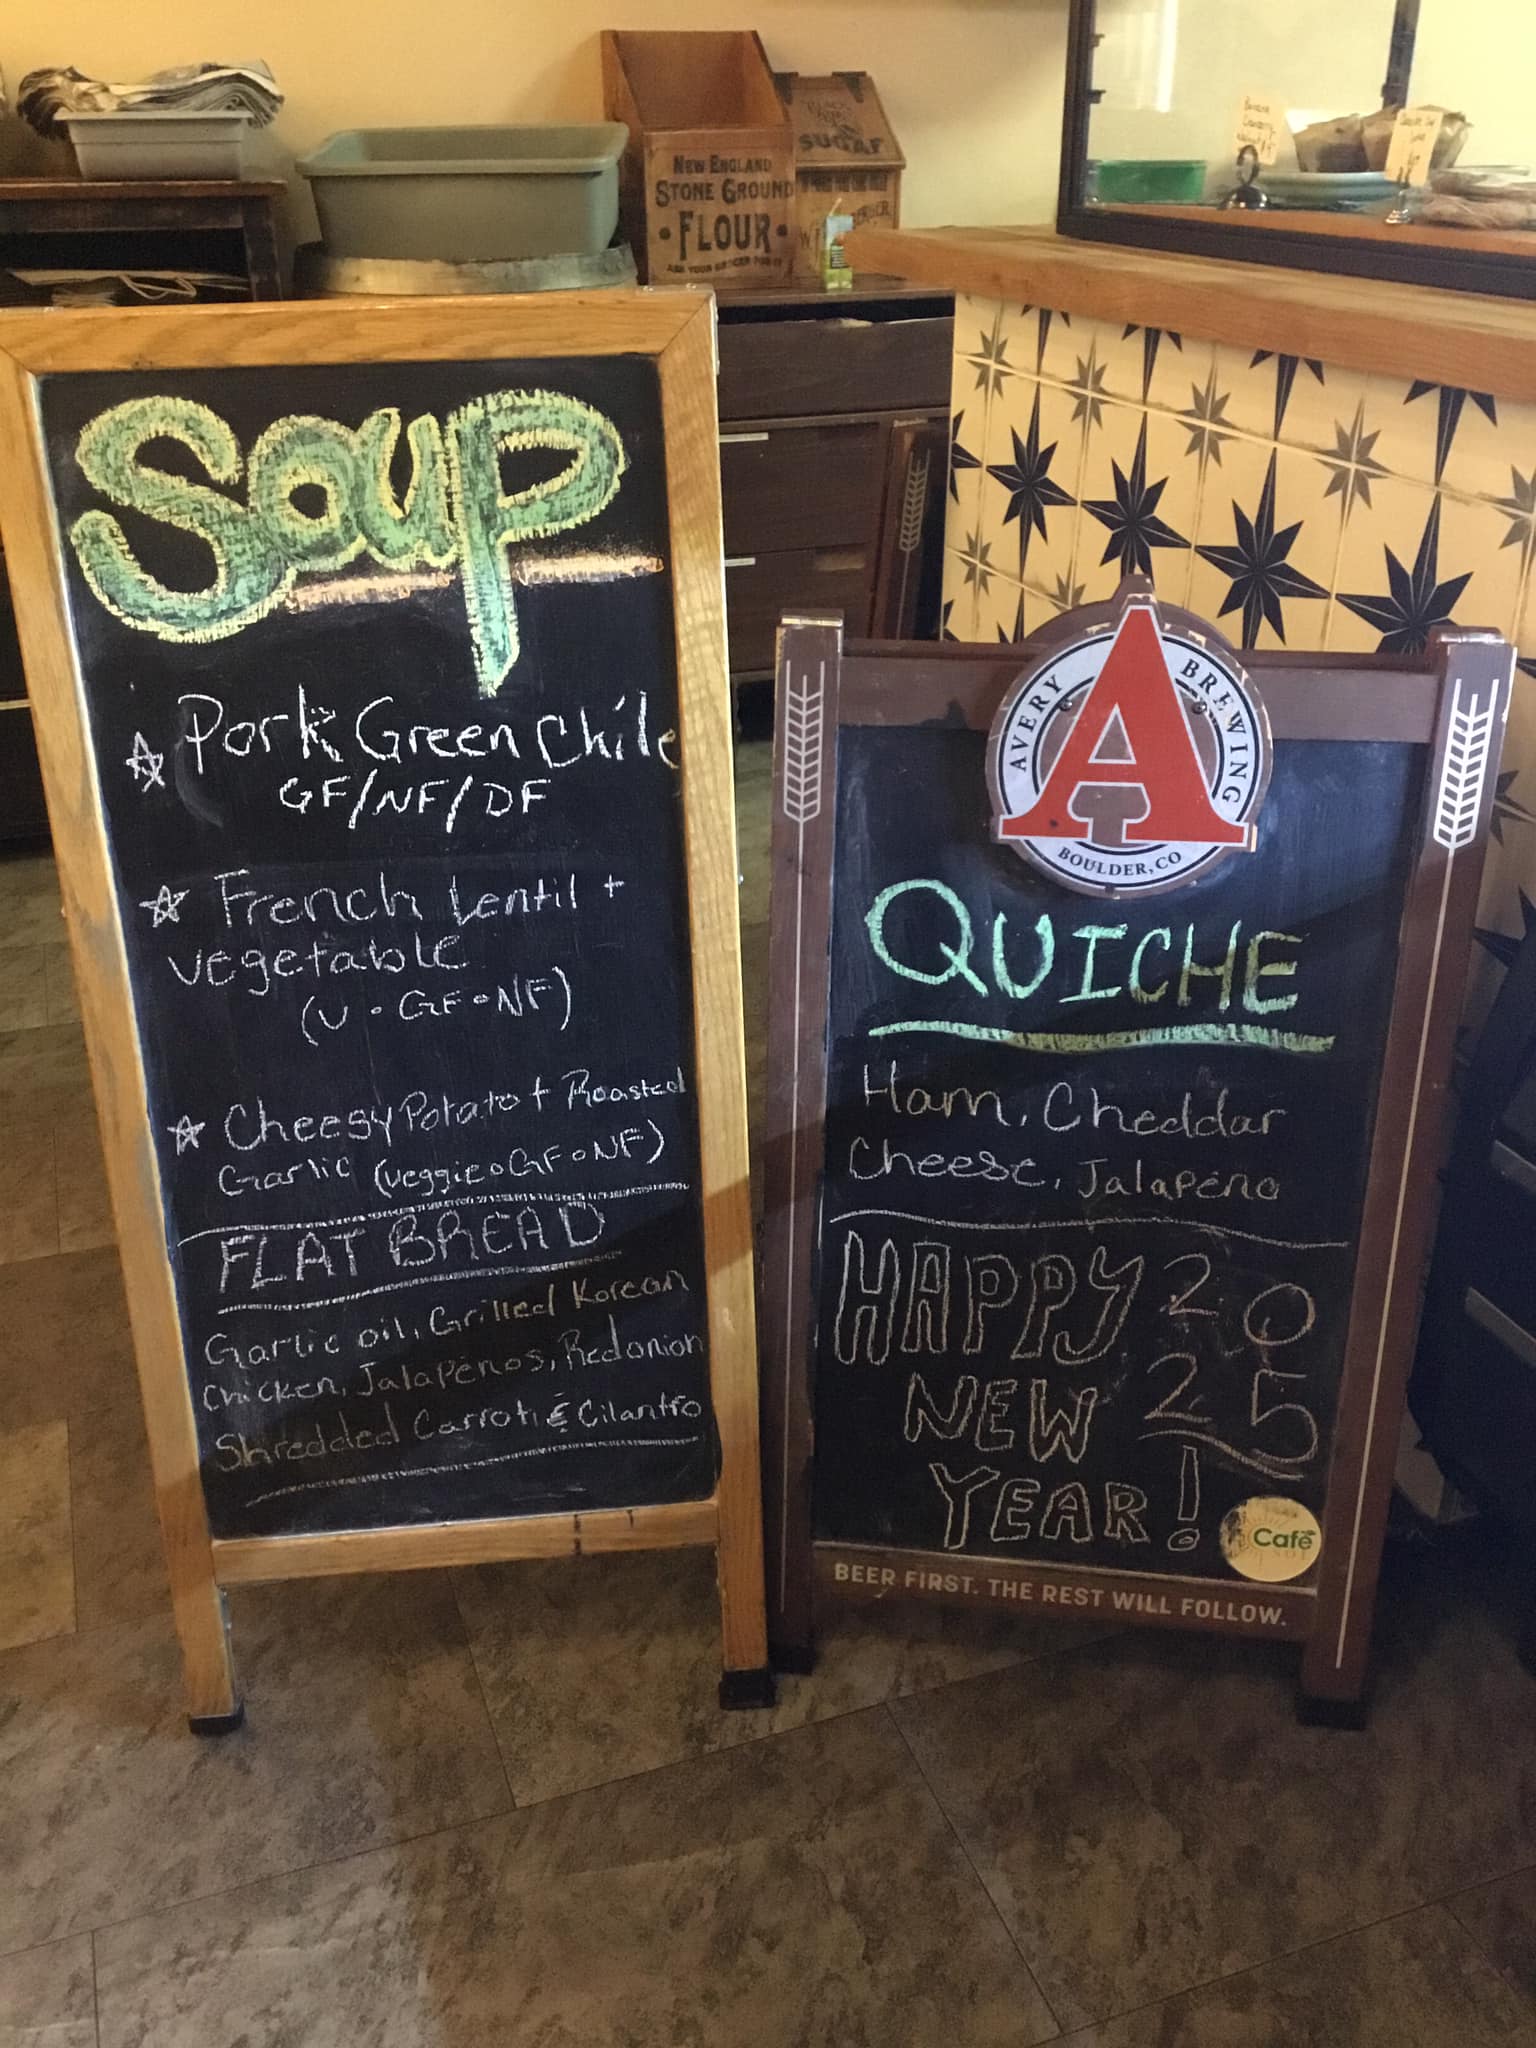 NEW ENGLAND
STONE GROUND
• FLOUR •
ASK YOUR GROCER FOR IT
SUGAR
Soup
☆ Pork Green Chile
GF/NF/DF
☆ French Lentil +
vegetable
(V • GF • NF)
☆ Cheesy Potato + Roasted
Garlic (veggie • GF • NF)
FLAT BREAD
Garlic oil, Grilled Korean
Chicken, Jalapeños, Red onion
Shredded Carrot, & Cilantro
AVERY BREWING
A
BOULDER, CO
QUICHE
Ham, Cheddar
Cheese, Jalapeno
HAPPY 20
NEW 25
YEAR!
Café
BEER FIRST. THE REST WILL FOLLOW.